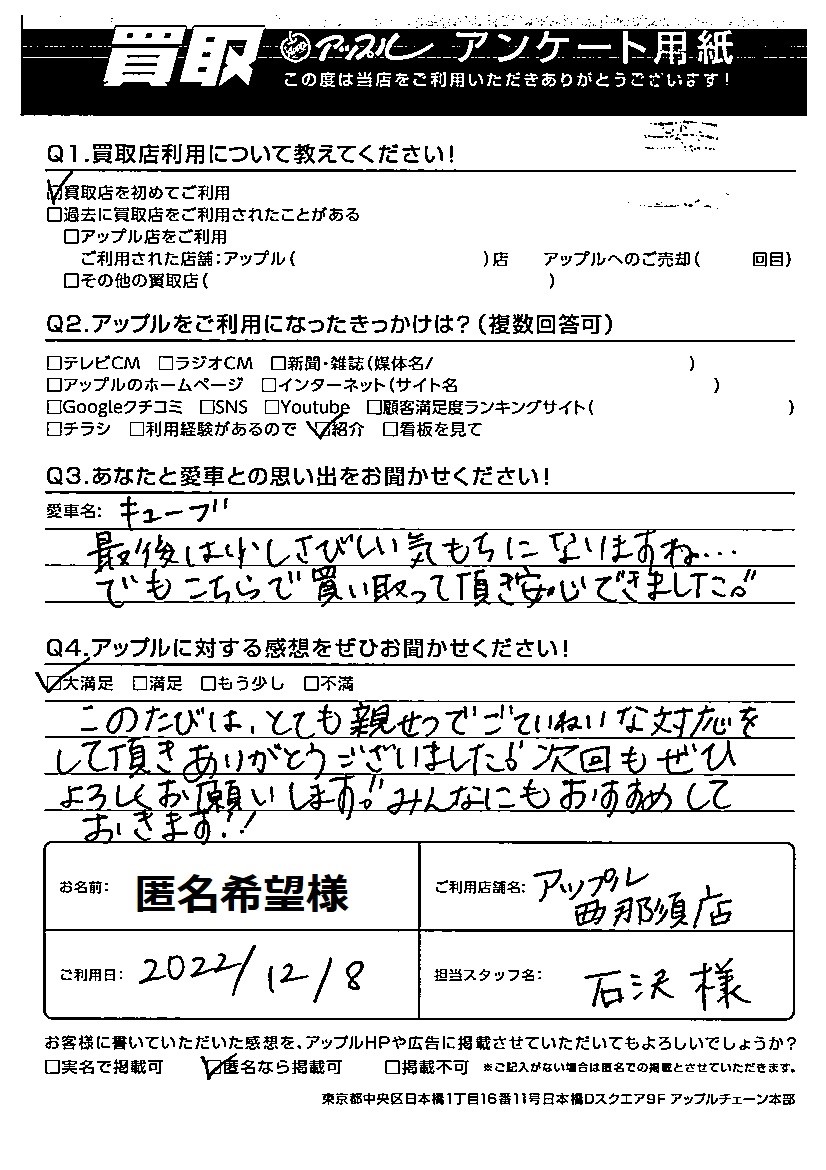 買取 アップル アンケート用紙
この度は当店をご利用いただきありがとうございます!
Q1.買取店利用について教えてください!
☑買取店を初めてご利用
□過去に買取店をご利用されたことがある
□アップル店をご利用
ご利用された店舗:アップル( )店 アップルへのご売却( 回目)
□その他の買取店( )
Q2.アップルをご利用になったきっかけは?(複数回答可)
□テレビCM □ラジオCM □新聞・雑誌(媒体名/ )
□アップルのホームページ □インターネット(サイト名 )
□Googleクチコミ □SNS □Youtube □顧客満足度ランキングサイト( )
□チラシ □利用経験があるので ☑紹介 □看板を見て
Q3.あなたと愛車との思い出をお聞かせください!
愛車名: キューブ
最後は少しさびしい気もちになりますね…
でもこちらで買い取って頂き安心できました。
Q4.アップルに対する感想をぜひお聞かせください!
☑大満足 □満足 □もう少し □不満
このたびは、とても親せつでごていねいな対応を
して頂きありがとうございました。次回もぜひ
よろしくお願いします。みんなにもおすすめして
おきます!!
お名前: 匿名希望様
ご利用店舗名: アップル
西那須店
ご利用日: 2022/12/8
担当スタッフ名: 石沢様
お客様に書いていただいた感想を、アップルHPや広告に掲載させていただいてもよろしいでしょうか?
□実名で掲載可 ☑匿名なら掲載可 □掲載不可 ※ご記入がない場合は匿名での掲載とさせていただきます。
東京都中央区日本橋1丁目16番11号日本橋Dスクエア9F アップルチェーン本部